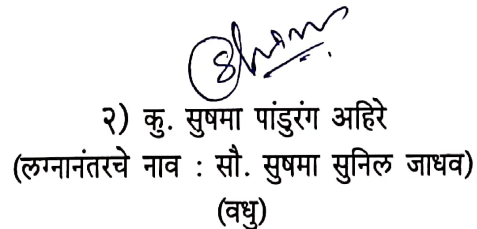 २) कु. सुषमा पांडुरंग अहिरे
(लग्नानंतरचे नाव : सौ. सुषमा सुनिल जाधव)
(वधु)